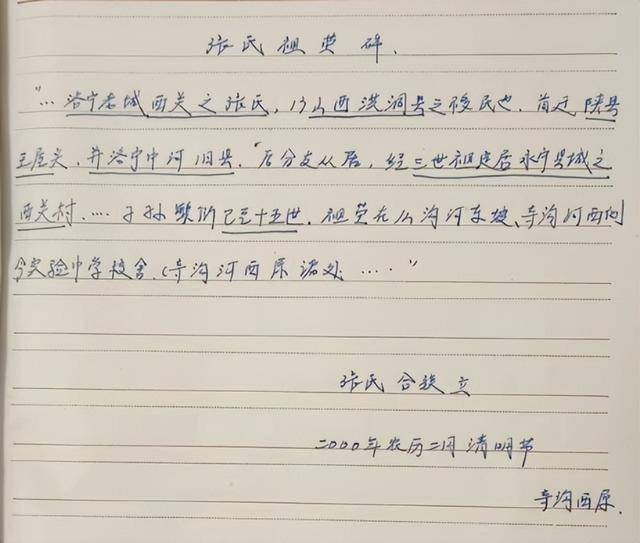 张氏祖茔碑.
"… 洛宁老城西关之张氏, 乃山西洪洞县之移民也. 首迁陕县
王屋关, 井洛宁中河旧县. 后分支从居, 经三世祖定居永宁县城之
西关村. …. 子孙繁衍已至十五世. 祖茔在 沟河东坡、寺沟河西
今实验中学校舍. (寺沟河西原诸处 …. "
张氏合族立
二000年农历二月清明节
寺沟西原.